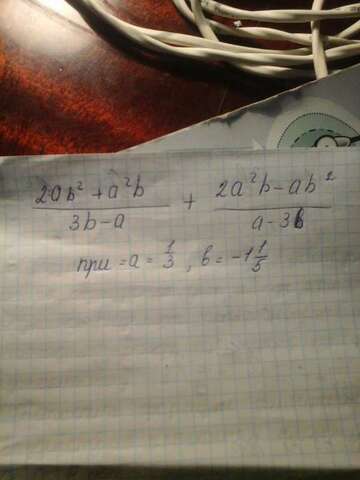 2ab² + a²b / 3b - a + 2a²b - ab² / a - 3b
при = a = 1/3 , b = -1 1/5